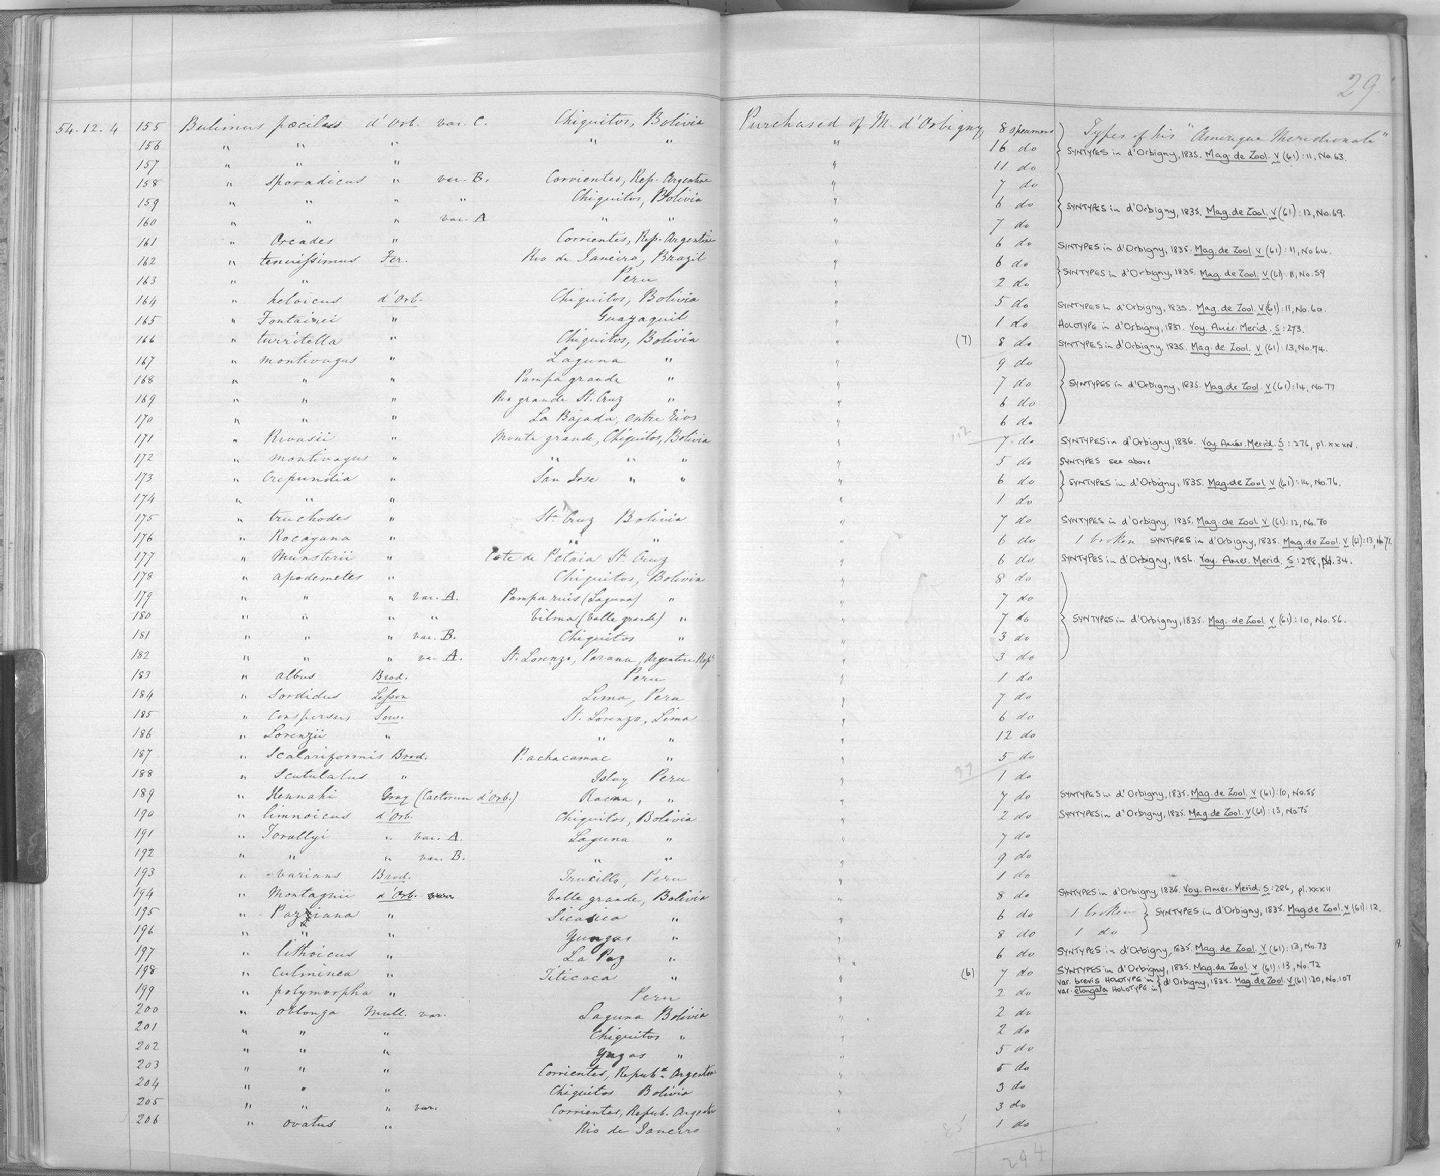 29
54.12.4 155 Bulimus pœcilus d'Orb. var. C. Chiquitos, Bolivia Purchased of M. d'Orbigny 8 specimens Types of his "Amerique Meridionale"
156 " " " " " " 16 do SYNTYPES in d'Orbigny, 1835. Mag. de Zool. V (61): 11, No. 63.
157 " " " " 11 do
158 " sporadicus " var. B. Corrientes, Rep. Argentine " 7 do
159 " " " " Chiquitos, Bolivia " 6 do SYNTYPES in d'Orbigny, 1835. Mag. de Zool. V (61): 12, No. 69.
160 " " " var. A " " " 7 do
161 " Orcades " Corrientes, Rep. Argentine " 6 do SYNTYPES in d'Orbigny, 1835. Mag. de Zool. V (61): 11, No 64.
162 " tenuissimus Fer. Rio de Janeiro, Brazil " 6 do SYNTYPES in d'Orbigny, 1835. Mag. de Zool. V (61): 11, No. 59
163 " " Peru " 2 do
164 " heloicus d'Orb. Chiquitos, Bolivia " 5 do SYNTYPES in d'Orbigny, 1835. Mag. de Zool. V (61): 11, No. 60.
165 " Fontainei " Guayaquil " 1 do HOLOTYPE in d'Orbigny, 1837. Voy. Amér. Merid. 5: 273.
166 " turritella " Chiquitos, Bolivia " (7) 8 do SYNTYPES in d'Orbigny, 1835. Mag. de Zool. V (61): 13, No. 74.
167 " montivagus " Laguna " " 9 do
168 " " " Pampa grande " " 7 do SYNTYPES in d'Orbigny, 1835. Mag. de Zool. V (61): 14, No. 77
169 " " " Rio grande St. Cruz " " 6 do
170 " " " La Bajada, entre Rios " 6 do
171 " Rivasii " Monte grande, Chiquitos, Bolivia " 112 7 do SYNTYPES in d'Orbigny, 1836. Voy. Amér. Merid. 5: 276, pl.
172 " montivagus " " " " " 5 do SYNTYPES see above
173 " Crepundia " San Jose " " " 6 do SYNTYPES in d'Orbigny, 1835. Mag. de Zool. V (61): 14, No. 76.
174 " " " " 1 do
175 " truchodes " St. Cruz Bolivia " 7 do SYNTYPES in d'Orbigny, 1835. Mag. de Zool. V (61): 12, No. 70
176 " Rocayana " " " " 6 do 1 broken SYNTYPES in d'Orbigny, 1835. Mag. de Zool. V (61): 13, No 71.
177 " Munsterii " Cote de Petaia St. Cruz " 6 do SYNTYPES in d'Orbigny, 1836. Voy. Amer. Merid. 5: 275, pl. 34.
178 " apodemetes " Chiquitos, Bolivia " 8 do
179 " " " var. A. Pamparuis (Laguna) " " 7 do
180 " " " " Vilma (Valle grande) " " 7 do SYNTYPES in d'Orbigny, 1835. Mag. de Zool. V (61): 10, No. 56.
181 " " " var. B. Chiquitos " " 3 do
182 " " " var. A. St. Lorenzo, Parana, Argentine Rep. " 3 do
183 " albus Brod. Peru " 1 do
184 " Sordidus Lesson Lima, Peru " 7 do
185 " conspersus Sow. St. Lorenzo, Lima " 6 do
186 " Lorenzii " " " " 12 do
187 " Scalariformis Brod. Pachacamac " " 97 5 do
188 " Scutulatus " Islay Peru " 1 do
189 " Hennahi Gray (Cactorum d'Orb.) Racna, " " 7 do SYNTYPES in d'Orbigny, 1835. Mag. de Zool. V (61): 10, No. 55
190 " limnoicus d'Orb. Chiquitos, Bolivia " 2 do SYNTYPES in d'Orbigny, 1835. Mag. de Zool. V (61): 13, No 75
191 " Torallyi " var. A. Laguna " " 7 do
192 " " " var. B. " " " 9 do
193 " varians Brod. Truxillo, Peru " 1 do
194 " Montagnii d'Orb. Valle grande, Bolivia " 8 do SYNTYPES in d'Orbigny, 1835. Voy. Amér. Merid. 5: 286, pl. XXXII
195 " Pazziana " Sicasica " " 6 do 1 broken SYNTYPES in d'Orbigny, 1835. Mag de Zool. V (61): 12.
196 " " Yungas " " 8 do 1 do
197 " lithoicus " La Paz " " 6 do SYNTYPES in d'Orbigny, 1835. Mag. de Zool. V (61): 13, No. 73
198 " Culminea " Titicaca " " (6) 7 do SYNTYPES in d'Orbigny, 1835. Mag. de Zool. V (61): 13, No. 72
199 " polymorpha " Peru " 2 do var. brevis HOLOTYPE in var. elongata HOLOTYPE in d'Orbigny, 1835. Mag. de Zool. V (61): 20, No. 107
200 " oblonga Mull. var. Laguna Bolivia " 2 do
201 " " " Chiquitos " " 2 do
202 " " " Yugas " " 5 do
203 " " " Corrientes, Repub. Argentine " 5 do
204 " " " Chiquitos Bolivia " 3 do
205 " " " var. Corrientes, Repub. Argentine " 3 do
206 " ovatus " Rio de Janeiro " 85 1 do
294